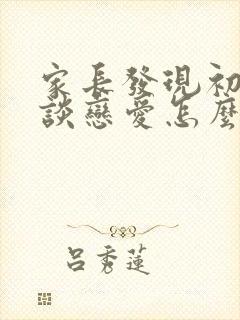 家長發現初
談戀愛怎麼
呂秀蓮